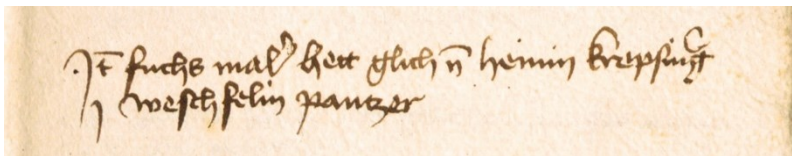 Jt fuchs maler hett glich n heinin krepsing
j weschfelin pantzer